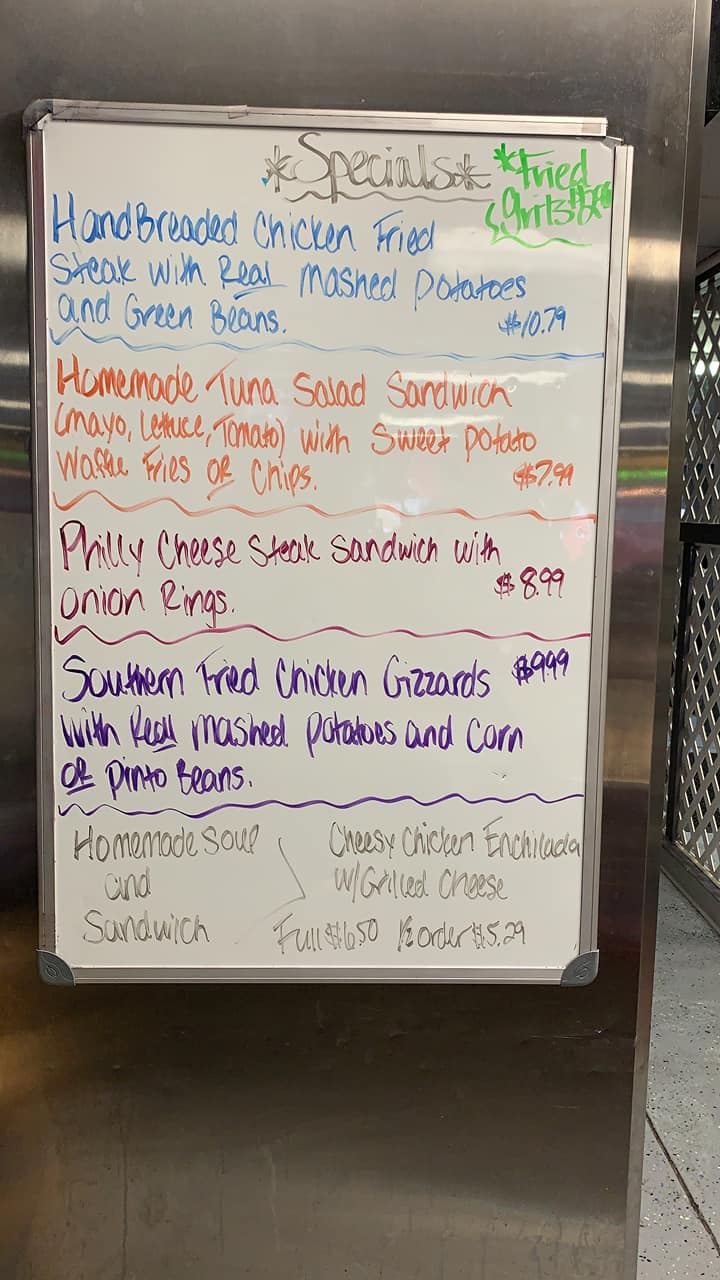 *Specials*
*Fried
Grits
HandBreaded Chicken Fried
Steak with Real mashed potatoes
and Green Beans.
$10.79
Homemade Tuna Salad Sandwich
(mayo, Lettuce, Tomato) with Sweet potato
Waffle Fries OR Chips.
$7.99
Philly Cheese Steak Sandwich with
Onion Rings.
$8.99
Southern Fried Chicken Gizzards $9.99
with Real mashed potatoes and Corn
OR Pinto Beans.
Homemade Soup
and
Sandwich
Cheesy Chicken Enchilada
w/Grilled Cheese
Full $6.50 ½ order $5.29